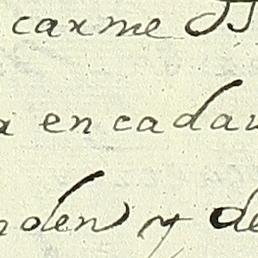 carme
a en cada
nden y de